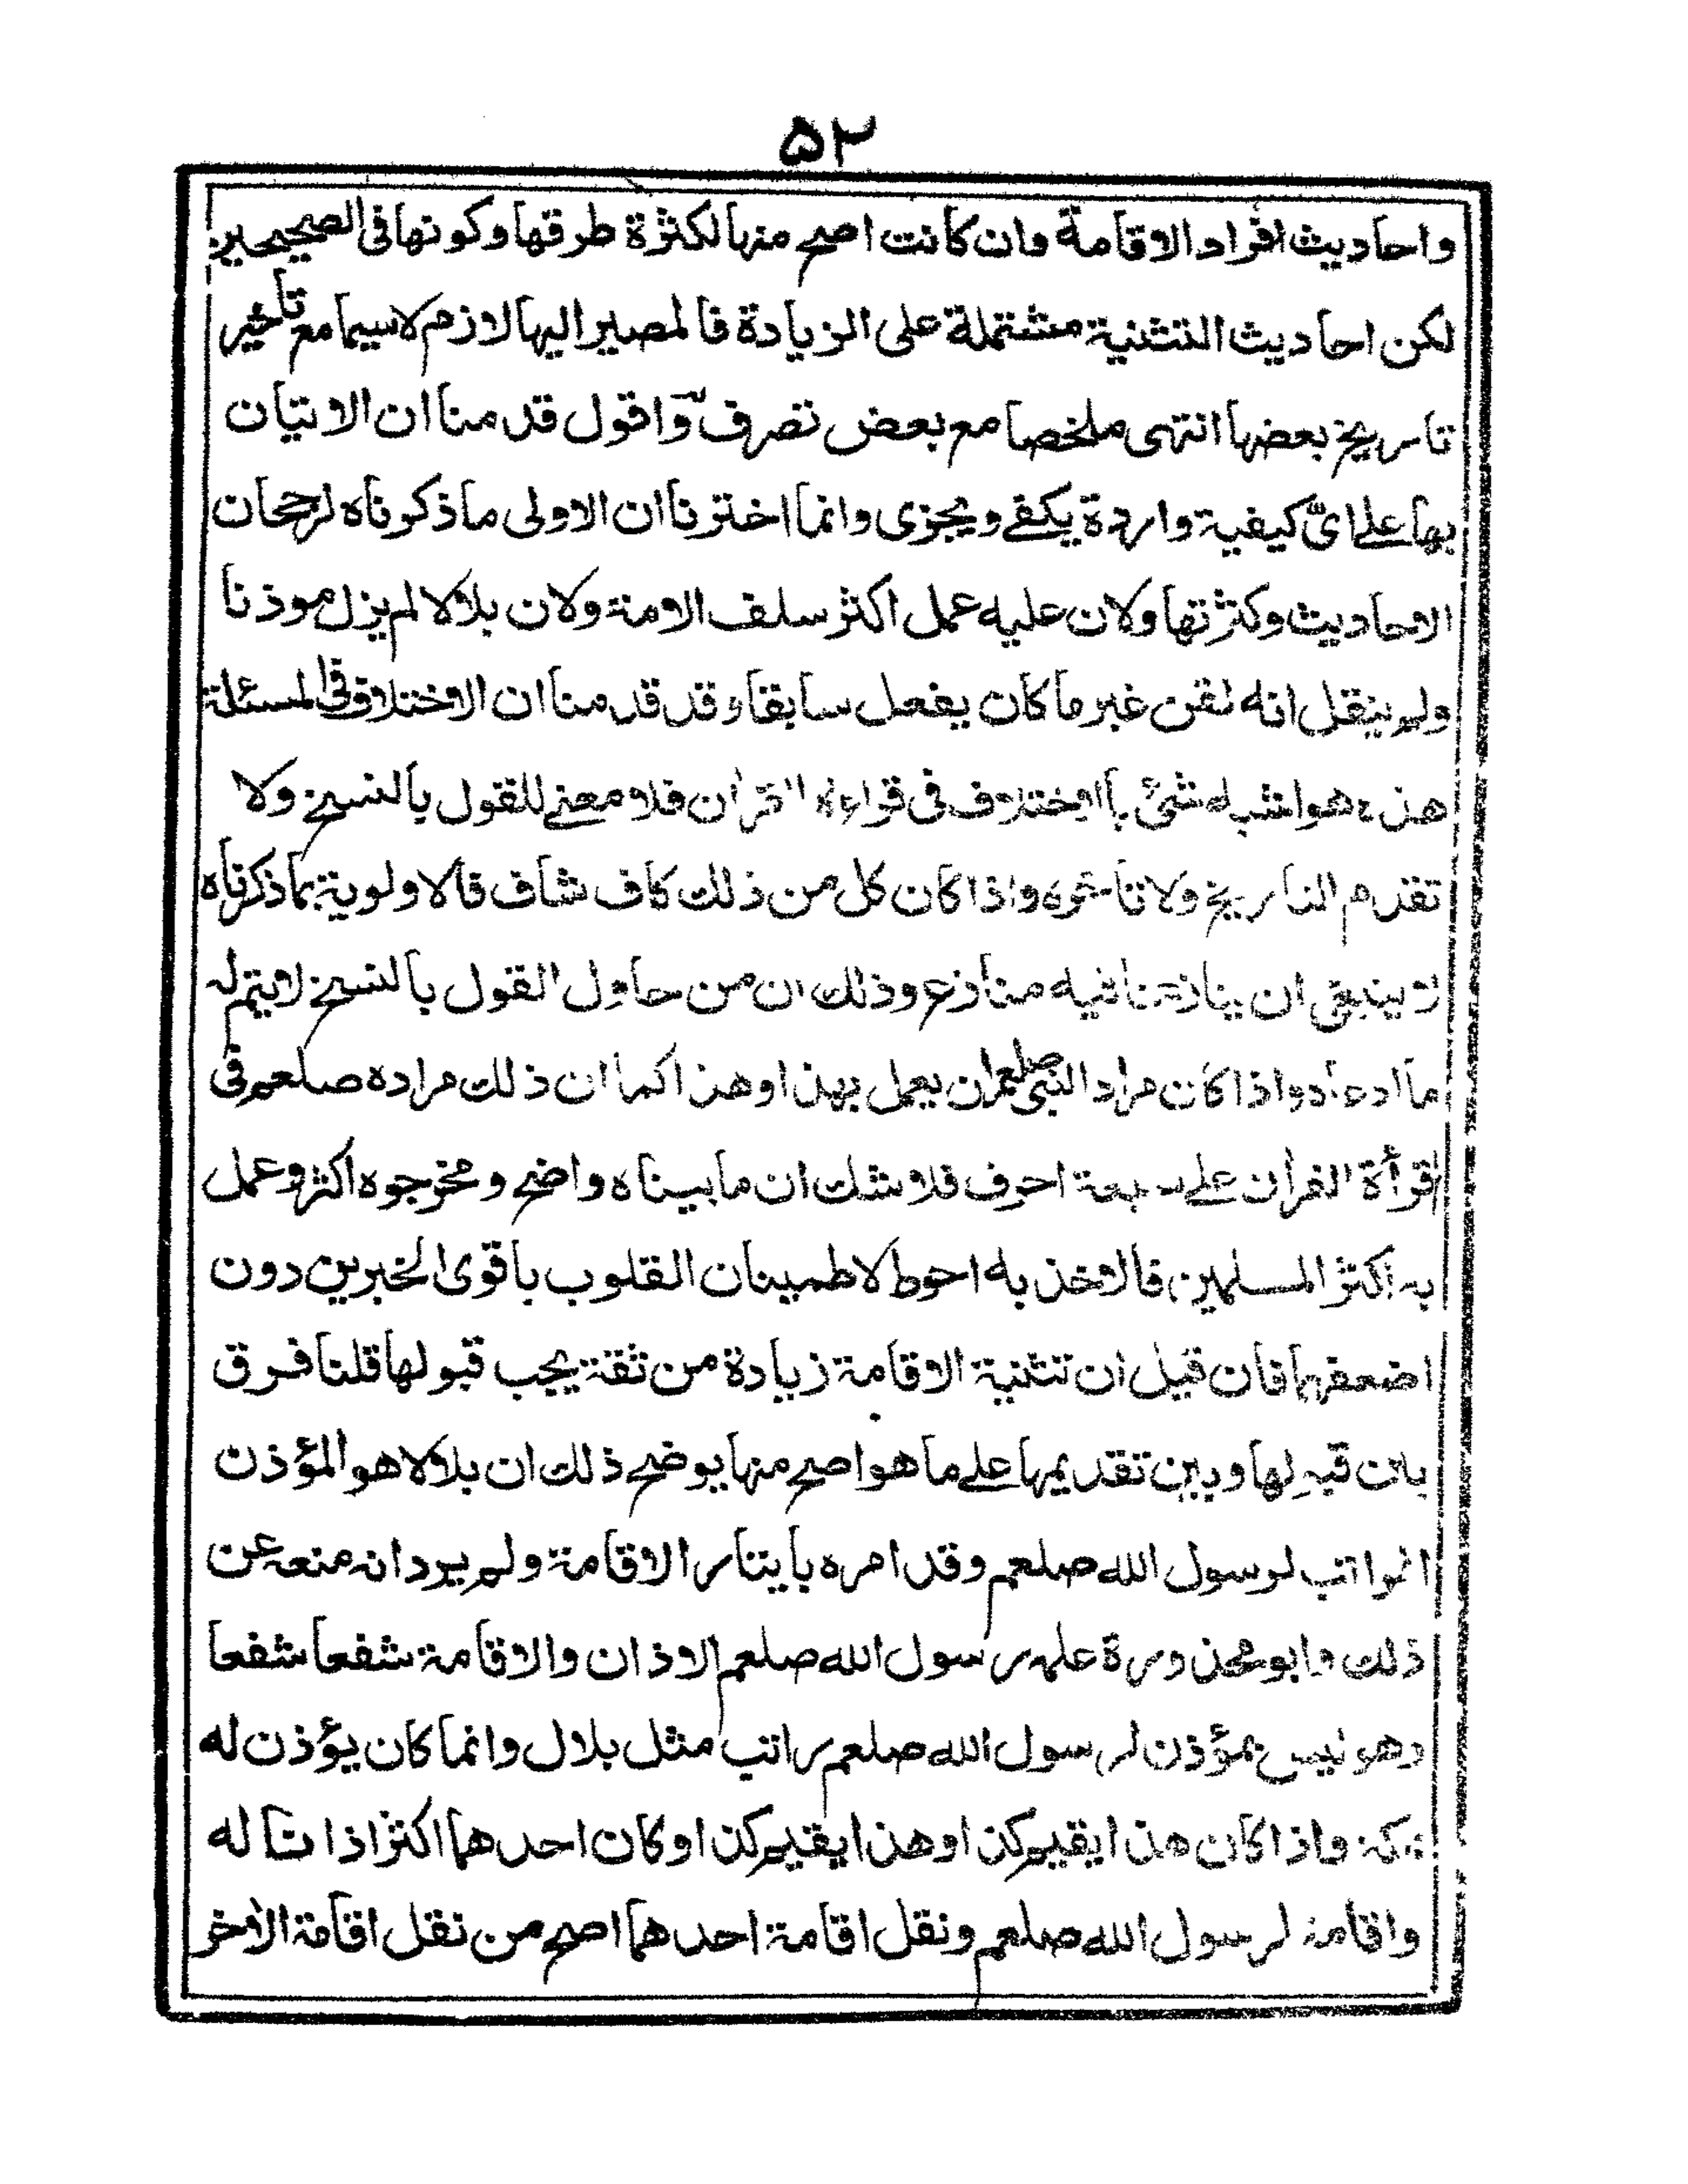 ۵۲
واحاديث افراد الاقامة وان كانت اصح منها لكثرة طرقها وكونها فى الصحيحين
لكن احاديث التثنية مشتملة على الزيادة فالمصير اليها لازم لاسيما مع تاخير
تاريخ بعضها انتهى ملخصا مع بعض تصرف واقول قدمنا ان الاتيان
بها على اىّ كيفية واردة يكفے ويجزى وانما اخترنا ان الاولى ما ذكرناه لرجحان
الاحاديث وكثرتها ولان عليه عمل اكثر سلف الامة ولان بلالا لم يزل موذنا
ولم ينقل انه لقن غير ما كان يفعل سابقا وقد قدمنا ان الاختلاف فى المسئلة
هذه هو اشبه شئ بالاختلاف فى قراءة القرأن فلا معنے للقول بالنسخ ولا
تقدم التاريخ ولا تاخره واذا كان كل من ذلك كاف شاف فالاولوية بما ذكرناه
لا ينبغى ان ينازعنا فيه منازع وذلك ان من حاول القول بالنسخ لا يتم له
ما ادعاه واذا كان مراد النبى صلعم ان يعمل بهذا وهذا كما ان ذلك مراده صلعم فى
قرأة القرأن علے سبعة احرف فلا شك ان ما بيناه واضح ومخرجوه اكثر وعمل
به اكثر المسلمين فالاخذ به احوط لاطمينان القلوب باقوى الخبرين دون
اضعفهما فان قيل ان تثنية الاقامة زيادة من ثقة يجب قبولها قلنا فرق
بين قبولها وبين تقديمها علے ما هو اصح منها يوضح ذلك ان بلالا هو المؤذن
الراتب لرسول الله صلعم وقد امره بايتار الاقامة ولم يرد انه منعه عن
ذلك وابو محذورة علمه رسول الله صلعم الاذان والاقامة شفعا شفعا
وهو ليس بمؤذن لرسول الله صلعم راتب مثل بلال وانما كان يؤذن له
بمكة واذا كان هذا يقيم كذا وهذا يقيم كذا وكان احدهما اكثر اذانا له
واقامة لرسول الله صلعم ونقل اقامة احدهما اصح من نقل اقامة الاخر